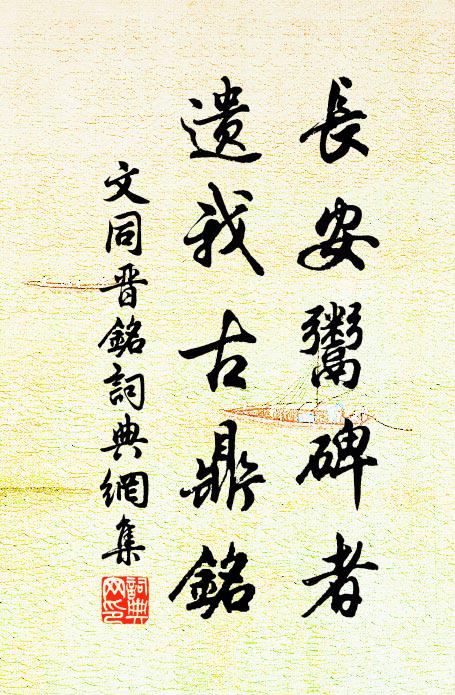 長安鬻碑者
遺我古鼎銘
文同晋銘詞典網集
詞典網印